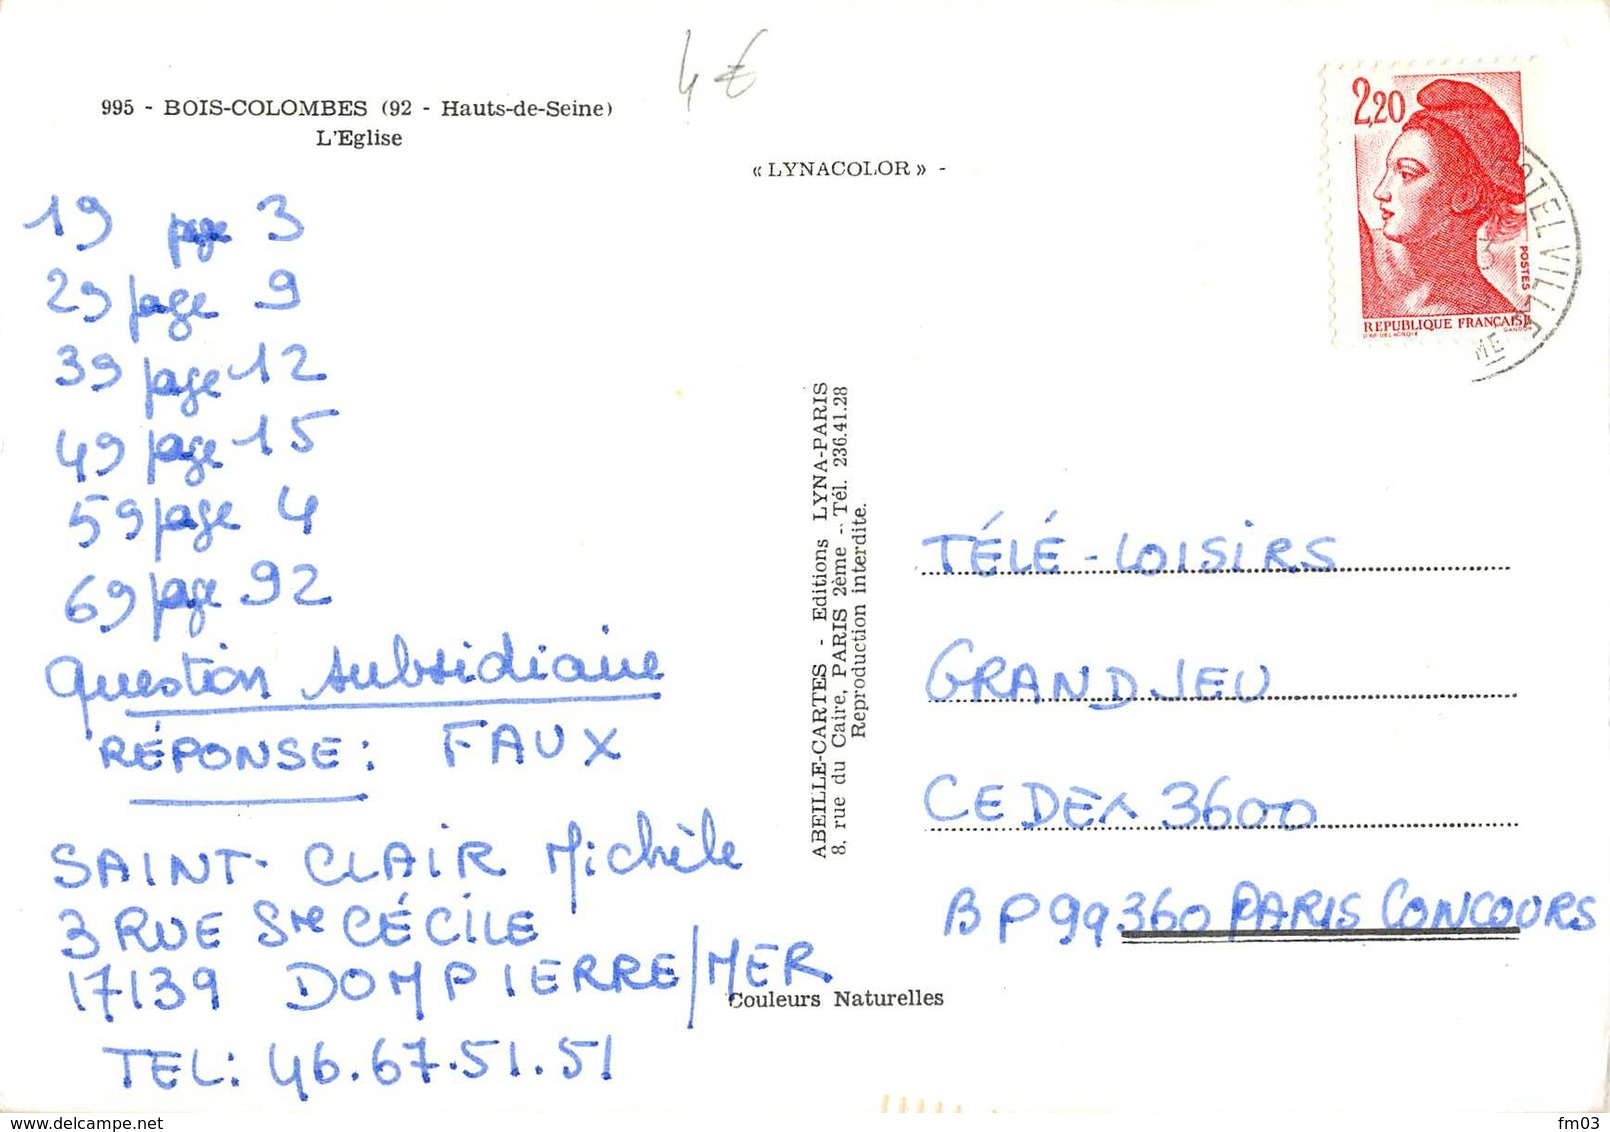 4€
995 - BOIS-COLOMBES (92 - Hauts-de-Seine)
L'Eglise
« LYNACOLOR » -
19 page 3
29 page 9
39 page 12
49 page 15
59 page 4
69 page 92
Question subsidiaire
RÉPONSE: FAUX
SAINT-CLAIR Michèle
3 RUE Ste CÉCILE
17139 DOMPIERRE/MER
TEL: 46.67.51.51
Couleurs Naturelles
ABEILLE-CARTES - Editions LYNA-PARIS
8, rue du Caire, PARIS 2ème - Tél. 236.41.28
Reproduction interdite.
2,20
POSTES
REPUBLIQUE FRANÇAISE
TÉLÉ-LOISIRS
GRAND JEU
CEDEX 3600
BP 99 360 PARIS CONCOURS
www.delcampe.net
fm03